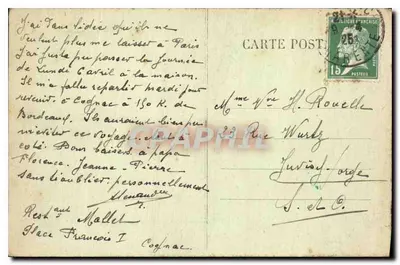 J'ai dans l'idée qu'ils ne
veulent plus me laisser à Paris
J'ai juste pu passer la journée
de Lundi 6 avril à la maison.
Il m'a fallu repartir mardi pour
revenir à Cognac à 130 K. de
Bordeaux. Ils auraient bien pu
m'éviter ce voyage.
coté. Bons baisers à papa
Florence. Jeanne. Pierre
sans t'oublier personnellement
Restant Mallet
Place François I
Cognac
CARTE POSTALE
RÉPUBLIQUE FRANÇAISE
15
POSTES
Mme Vve H. Rouelle
Rue Wurtz
Juvisy s/orge
S. et O.